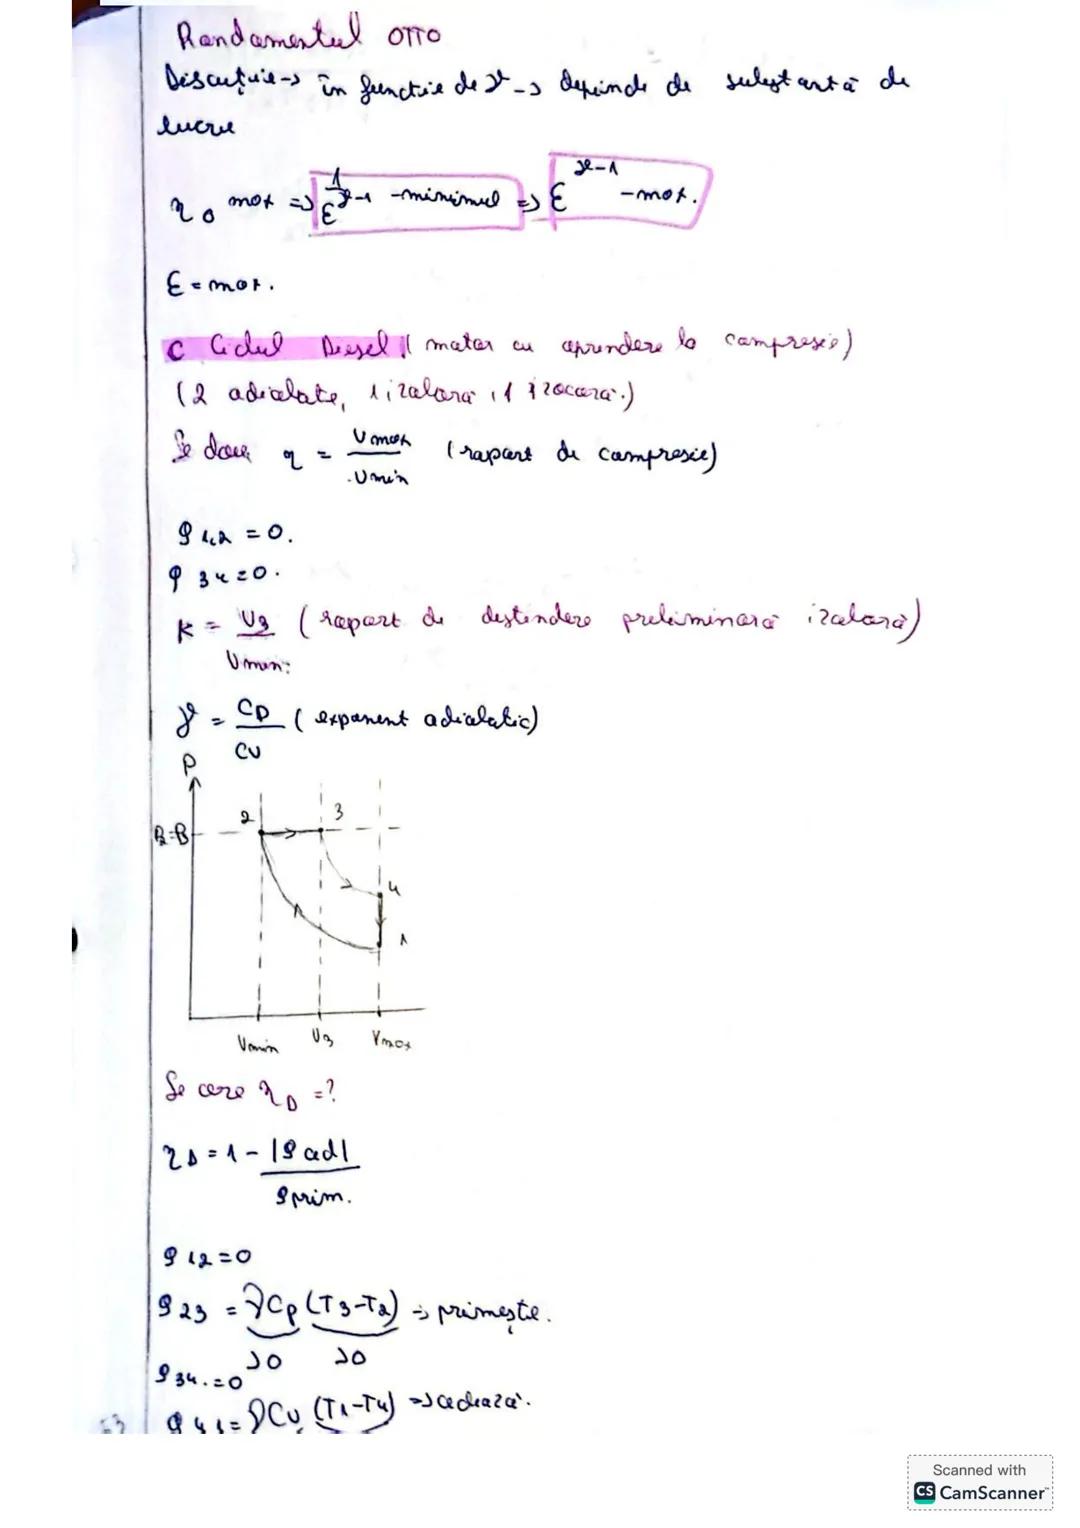 Randamentul OTTO
Discuție → în funcție de γ → depinde de substanță de
lucru
η₀ max => 1/ε^γ-1 -minimul => ε^γ-1 -max.
ε = max.
C Ciclul Diesel ( motor cu aprindere la compresie)
(2 adiabate, 1 izobară, 1 izocoră.)
Se dau η = Vmax/Vmin (raport de compresie)
Q 1,2 = 0.
Q 34 = 0.
K = V3/Vmin (raport de destindere preliminară izobară)
γ = Cp/CV (exponent adiabatic)
P
2 3
P2=P3
4
1
Vmin V3 Vmax
Se cere ηD =?
ηD = 1 - |Q ced|/Q prim.
Q 12 = 0
Q 23 = νCp (T3-T2) → primește.
>0 >0
Q 34. = 0
Q 41 = νCV (T1-T4) => cedează.
53
Scanned with
CS CamScanner